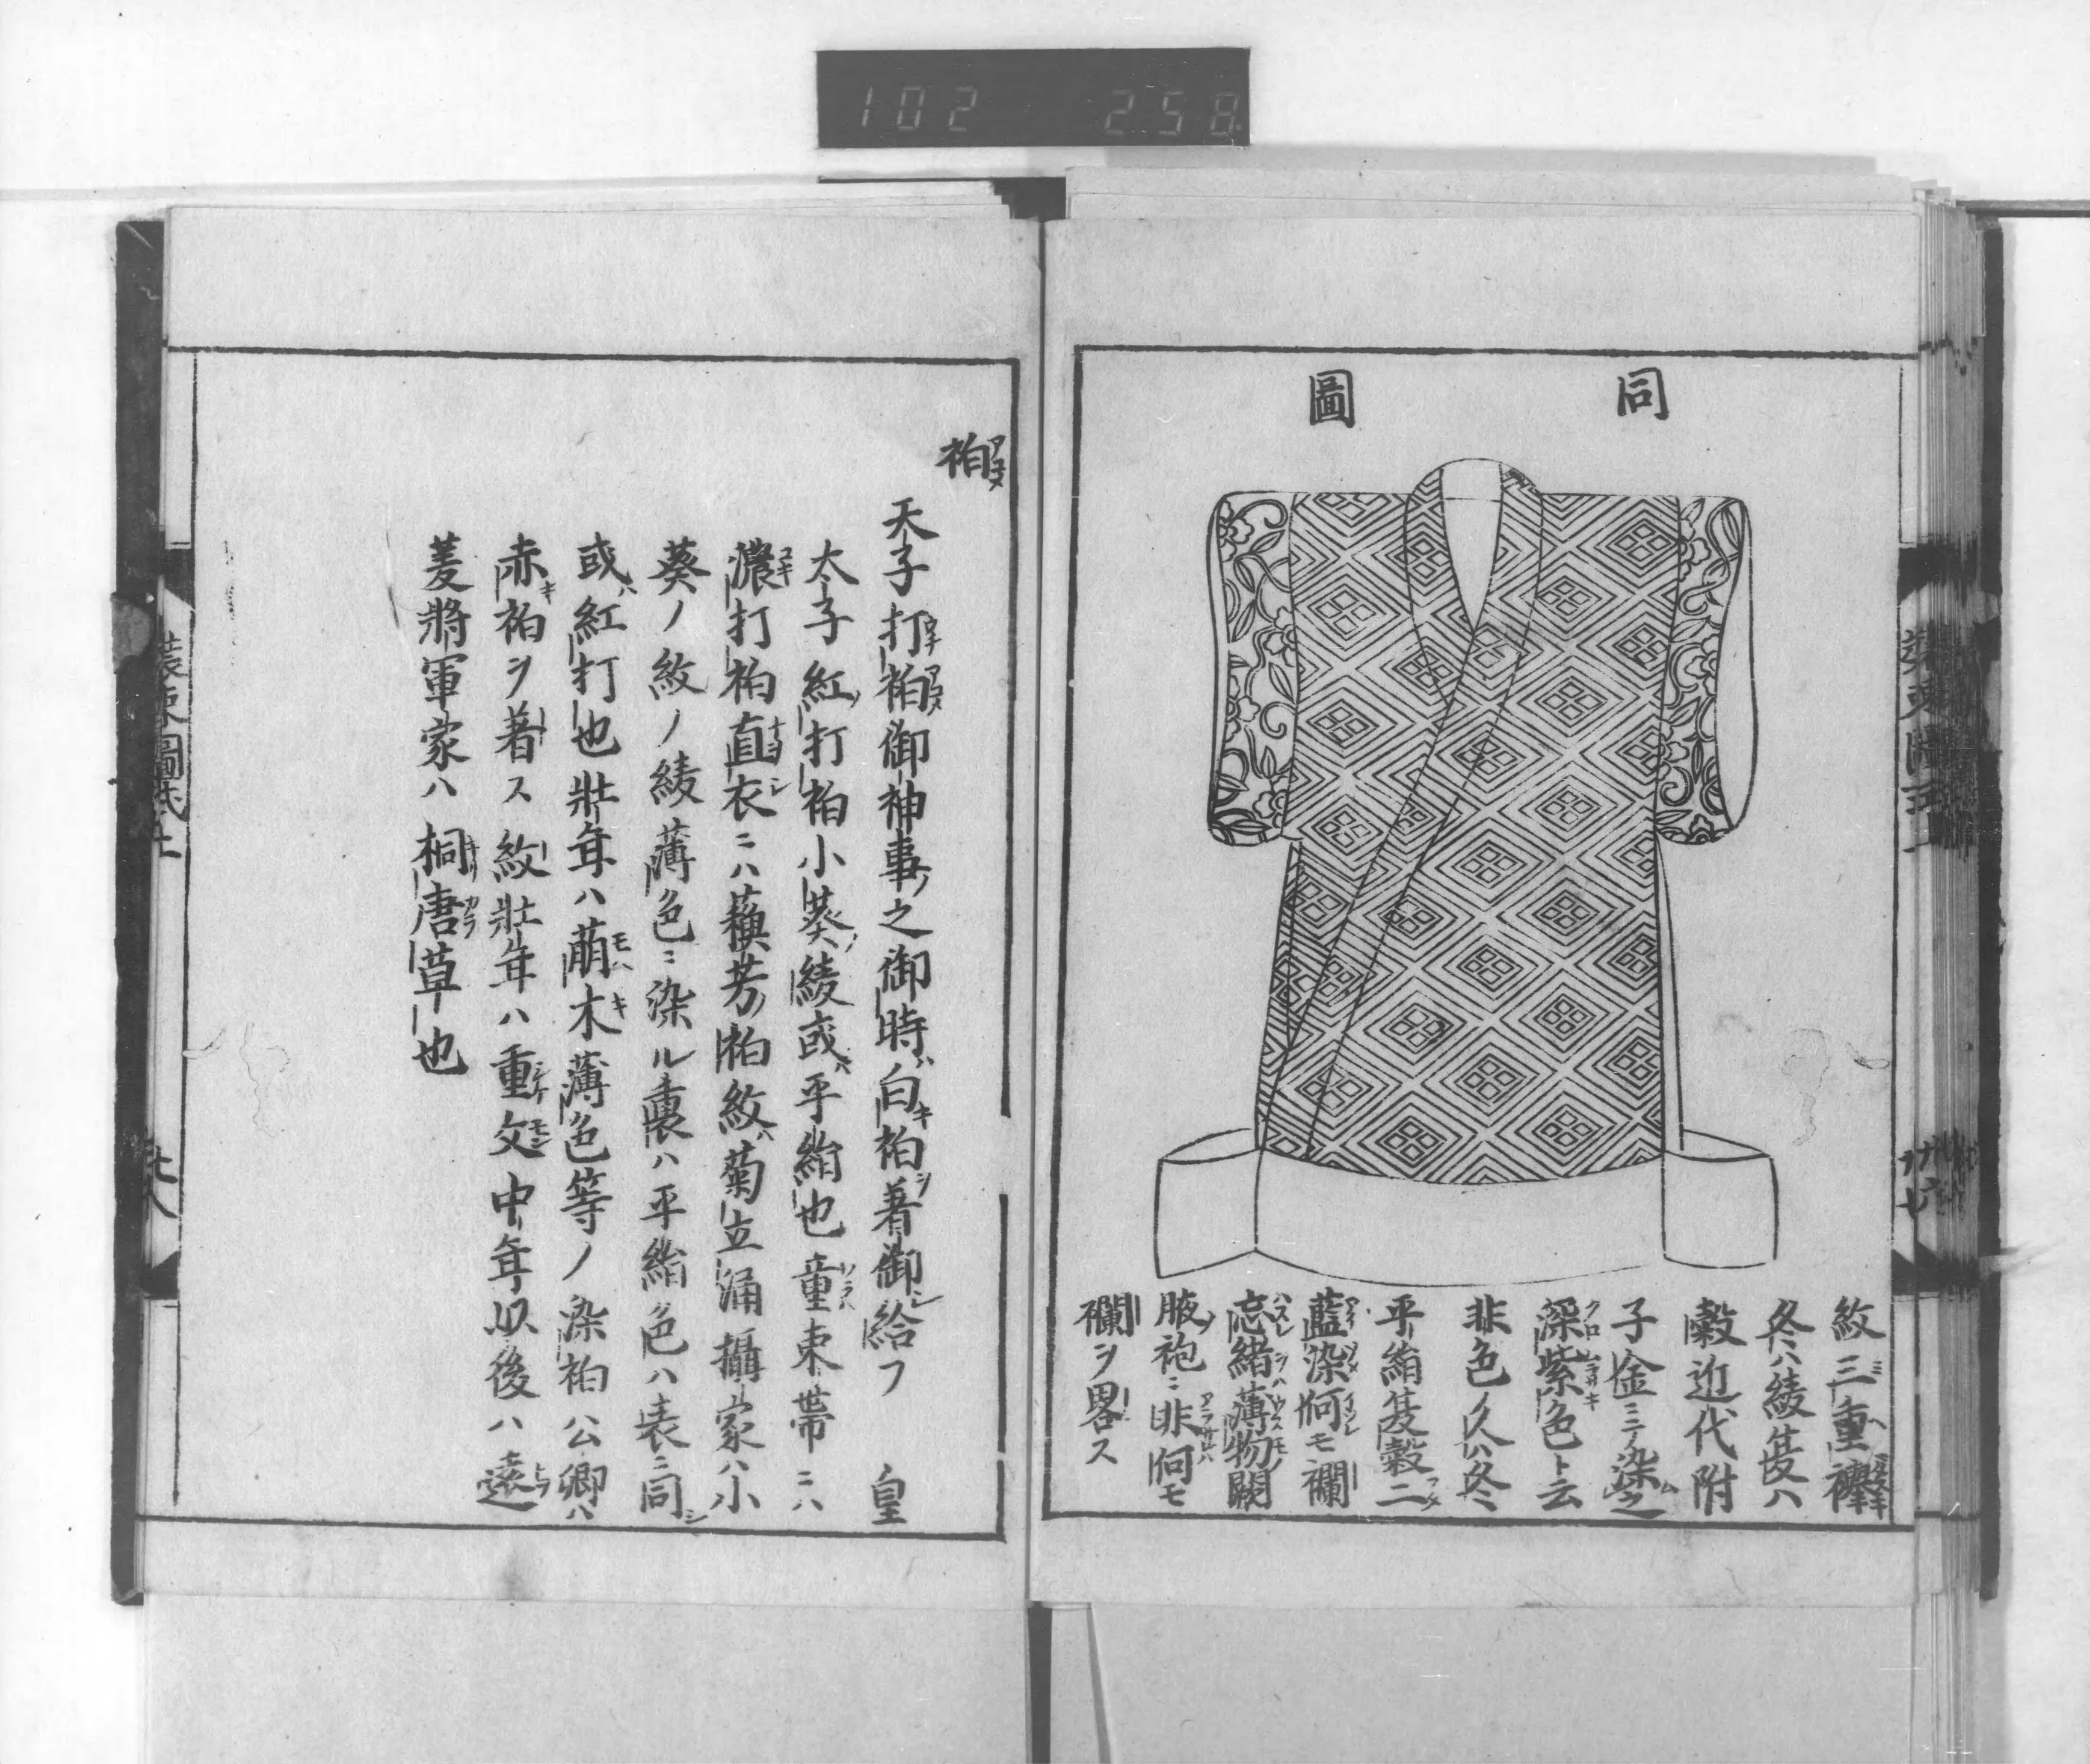 102 258
同圖
紋三重襷
冬ハ綾夏ハ
縠近代附
子金ニテ染之
深紫色ト云
非色ノ人ハ冬
平絹夏縠二
藍染何モ襴
忘緒薄物闕
腋袍ニ非何モ
襴ヲ畧ス
袙
天子打袙御神事之御時ハ白キ袙着御シ給フ 皇
太子紅打袙小葵ノ綾或ハ平絹也童束帶ニハ
濃打袙直衣ニハ蘓芳袙紋ハ菊立涌攝家ハ小
葵ノ紋ノ綾薄色ニ染ル裏ハ平絹色ハ表ニ同シ
或ハ紅打也壯年ハ萠木薄色等ノ染袙公卿ハ
赤キ袙ヲ着ス紋壯年ハ重文中年以後ハ遠
菱將軍家ハ桐唐草也